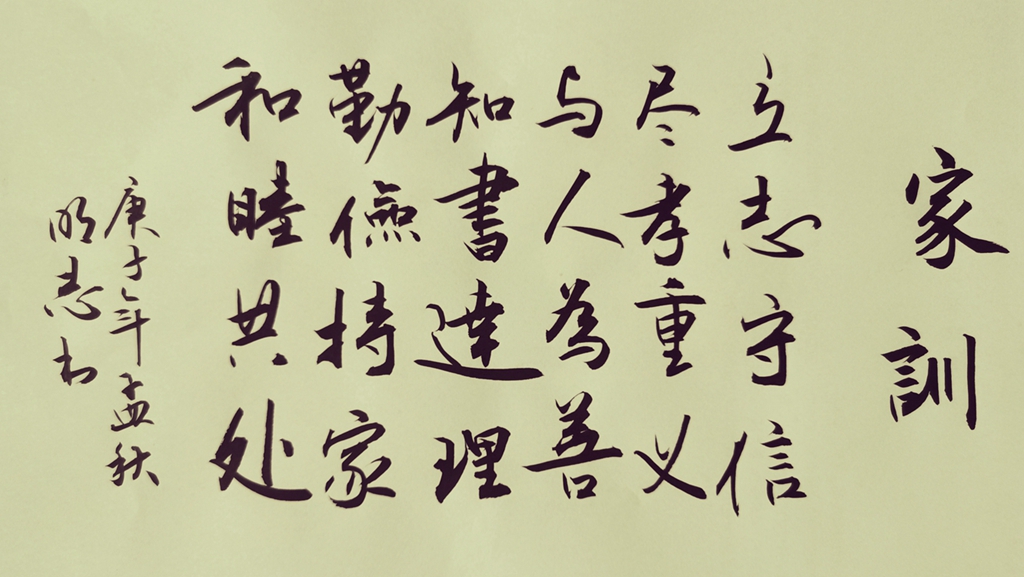 家訓
立志守信
尽孝重义
与人為善
知書達理
勤儉持家
和睦共处
庚子年孟秋
明志书